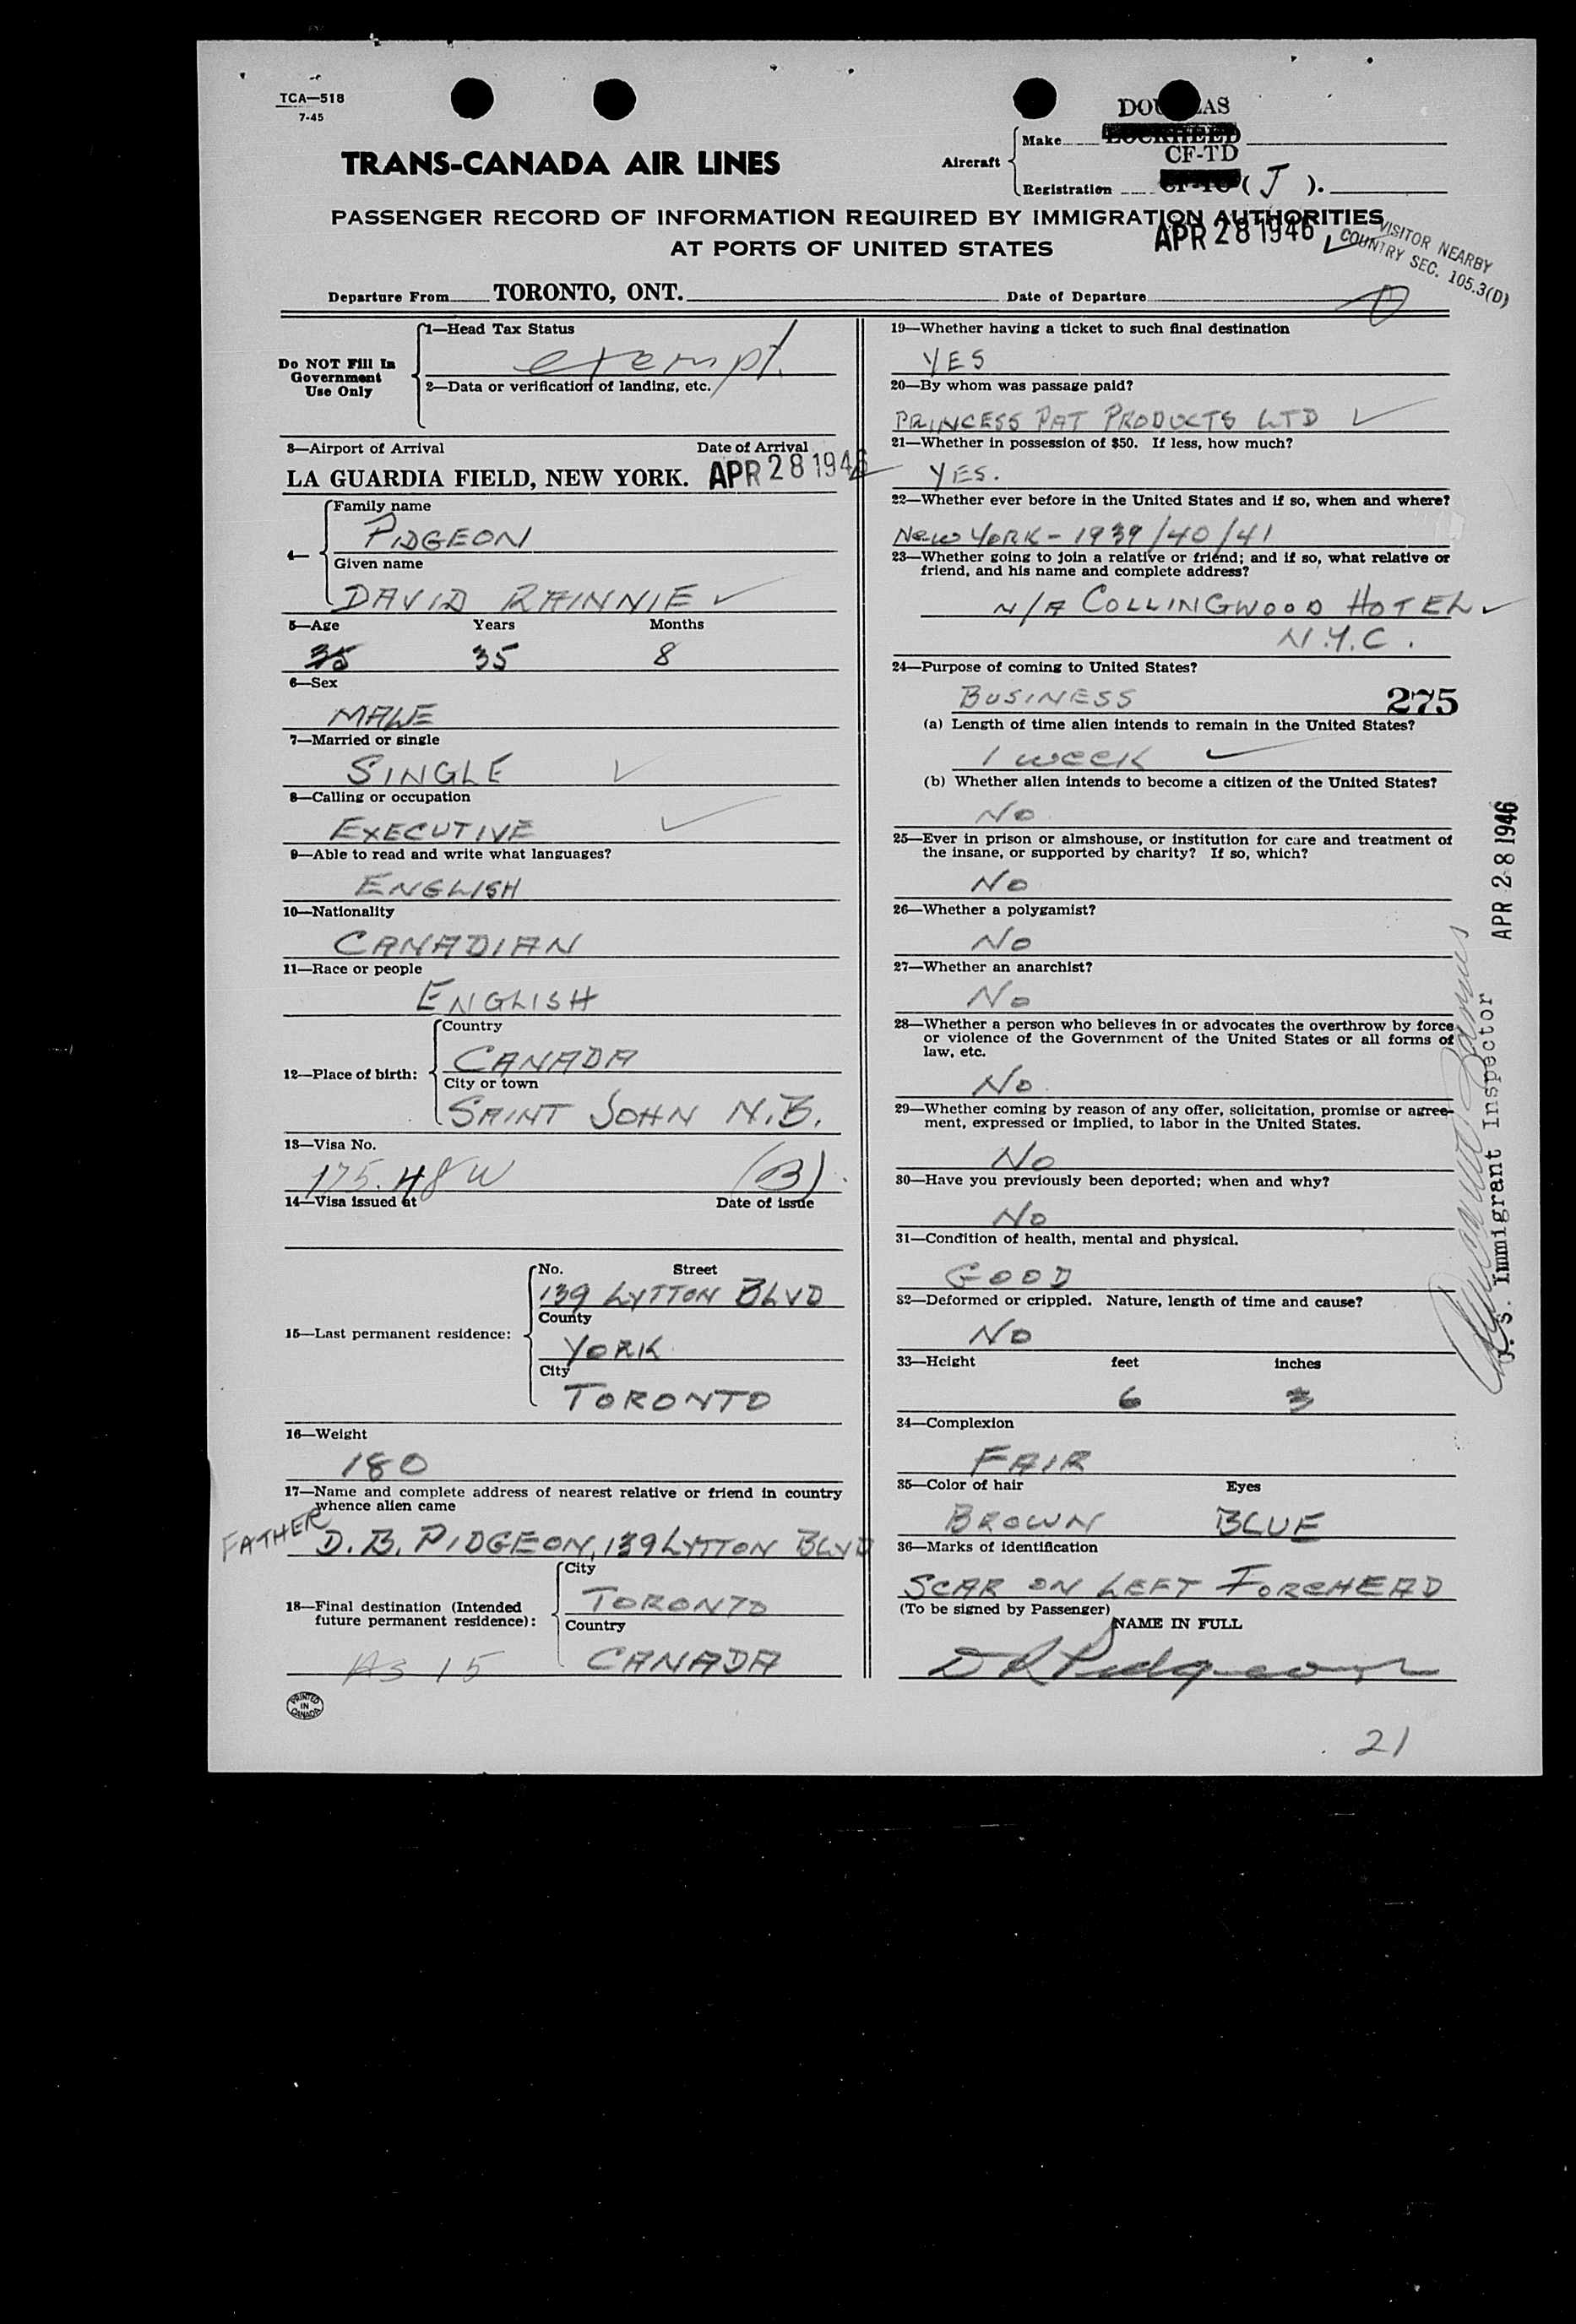 TCA—518
7-45
DOUGLAS
Aircraft
Make LOCKHEED
CF-TD
Registration CF-TC ( J ).
TRANS-CANADA AIR LINES
PASSENGER RECORD OF INFORMATION REQUIRED BY IMMIGRATION AUTHORITIES
AT PORTS OF UNITED STATES
APR 28 1946
VISITOR NEARBY
COUNTRY SEC. 105.3(D)
Departure From TORONTO, ONT. Date of Departure
Do NOT Fill In
Government
Use Only
1—Head Tax Status
exempt
2—Data or verification of landing, etc.
3—Airport of Arrival Date of Arrival
LA GUARDIA FIELD, NEW YORK. APR 28 1946
4—
Family name
PIDGEON
Given name
DAVID RAINNIE
5—Age Years Months
35 35 8
6—Sex
MALE
7—Married or single
SINGLE
8—Calling or occupation
EXECUTIVE
9—Able to read and write what languages?
ENGLISH
10—Nationality
CANADIAN
11—Race or people
ENGLISH
12—Place of birth:
Country
CANADA
City or town
SAINT JOHN N.B.
13—Visa No.
175.48W (B)
14—Visa issued at Date of issue
15—Last permanent residence:
No. Street
139 LYTTON BLVD
County
YORK
City
TORONTO
16—Weight
180
17—Name and complete address of nearest relative or friend in country
whence alien came
FATHER D. B. PIDGEON, 139 LYTTON BLVD
18—Final destination (Intended
future permanent residence):
City
TORONTO
Country
CANADA
AS 15
PRINTED
IN
CANADA
19—Whether having a ticket to such final destination
YES
20—By whom was passage paid?
PRINCESS PAT PRODUCTS LTD
21—Whether in possession of $50. If less, how much?
YES.
22—Whether ever before in the United States and if so, when and where?
NEW YORK - 1939/40/41
23—Whether going to join a relative or friend; and if so, what relative or
friend, and his name and complete address?
N/A COLLINGWOOD HOTEL
N.Y.C.
24—Purpose of coming to United States?
BUSINESS 275
(a) Length of time alien intends to remain in the United States?
1 WEEK
(b) Whether alien intends to become a citizen of the United States?
NO
25—Ever in prison or almshouse, or institution for care and treatment of
the insane, or supported by charity? If so, which?
NO
26—Whether a polygamist?
NO
27—Whether an anarchist?
NO
28—Whether a person who believes in or advocates the overthrow by force
or violence of the Government of the United States or all forms of
law, etc.
NO.
29—Whether coming by reason of any offer, solicitation, promise or agree-
ment, expressed or implied, to labor in the United States.
NO
30—Have you previously been deported; when and why?
NO
31—Condition of health, mental and physical.
GOOD
32—Deformed or crippled. Nature, length of time and cause?
NO
33—Height feet inches
6 3
34—Complexion
FAIR
35—Color of hair Eyes
BROWN BLUE
36—Marks of identification
SCAR ON LEFT FOREHEAD
(To be signed by Passenger)
NAME IN FULL
D R Pidgeon
21
U. S. Immigrant Inspector APR 28 1946